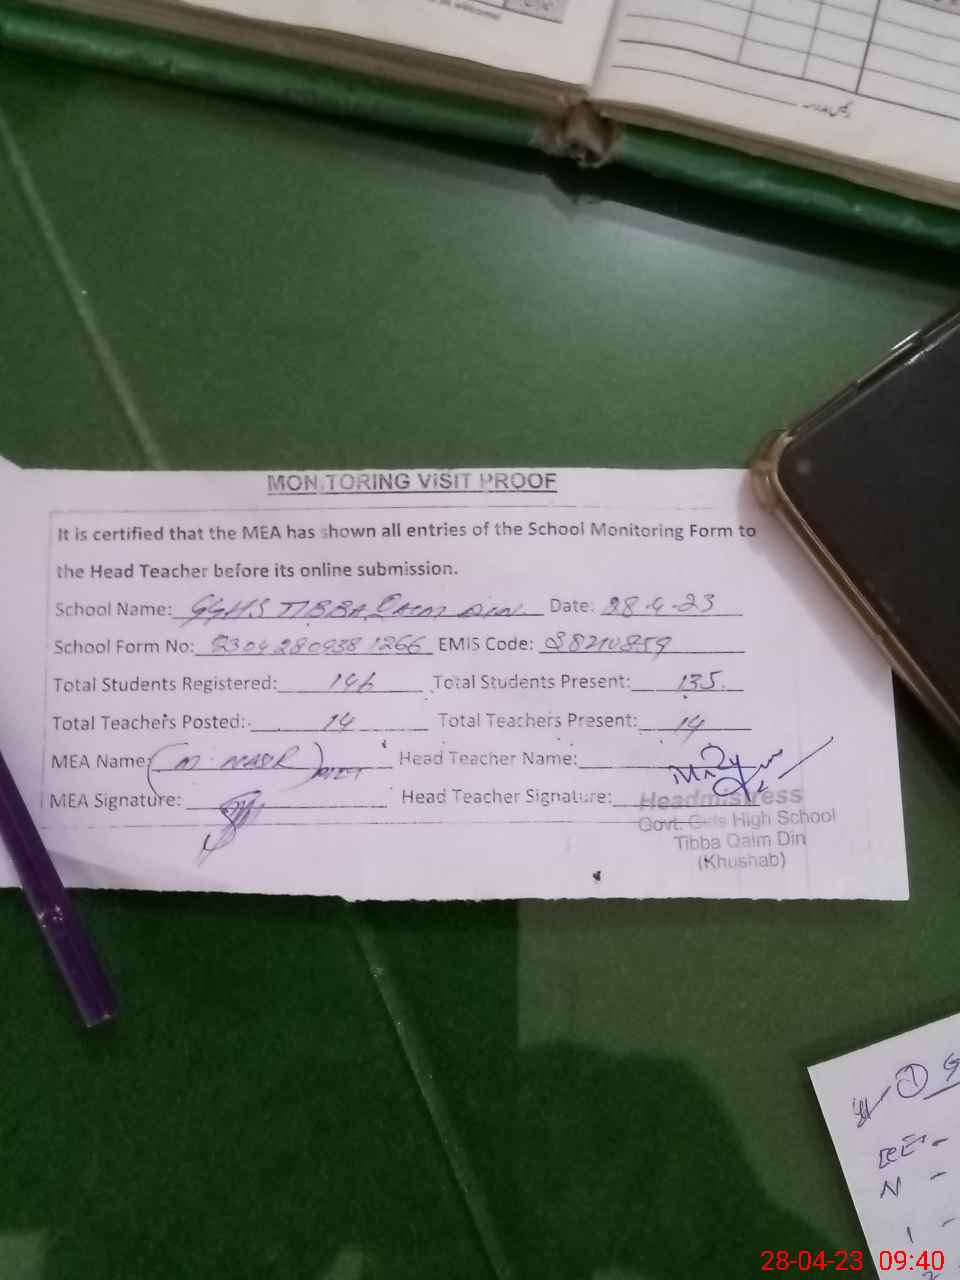 رئیس مدرسہ
MONITORING VISIT PROOF
It is certified that the MEA has shown all entries of the School Monitoring Form to
the Head Teacher before its online submission.
School Name: GGHS TIBBA QAIM DIN Date: 28-4-23
School Form No: 23042809381266 EMIS Code: 38210859
Total Students Registered: 146 Total Students Present: 135
Total Teachers Posted: 14 Total Teachers Present: 14
MEA Name: (M. NASR) Head Teacher Name:
MEA Signature: Head Teacher Signature:
Headmistress
Govt. Girls High School
Tibba Qaim Din
(Khushab)
1
N -
1 -
2
28-04-23 09:40